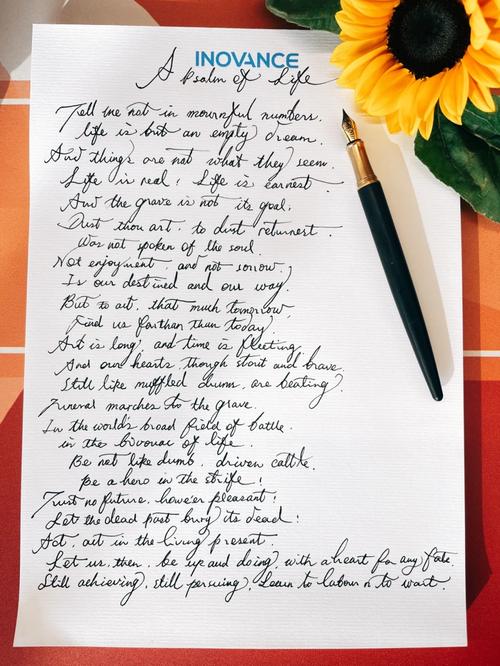 INOVANCE
A Psalm of Life
Tell me not in mournful numbers.
life is but an empty dream.
And things are not what they seem.
Life is real! Life is earnest.
And the grave is not its goal;
Dust thou art, to dust returnest.
Was not spoken of the soul.
Not enjoyment, and not sorrow,
Is our destined and our way.
But to act, that much tomorrow,
Find us farthan than today.
Art is long, and time is fleeting.
And our hearts, though stout and brave.
Still like muffled drums, are beating.
Funeral marches to the grave.
In the world's broad field of battle.
in the bivouac of life.
Be not like dumb, driven cattle.
Be a hero in the strife!
Trust no future, howe'er pleasant!
Let the dead past bury its dead!
Act, act in the living present.
Let us, then, be up and doing, with a heart for any fate.
Still achieving, still persuing, Learn to labour to wait.